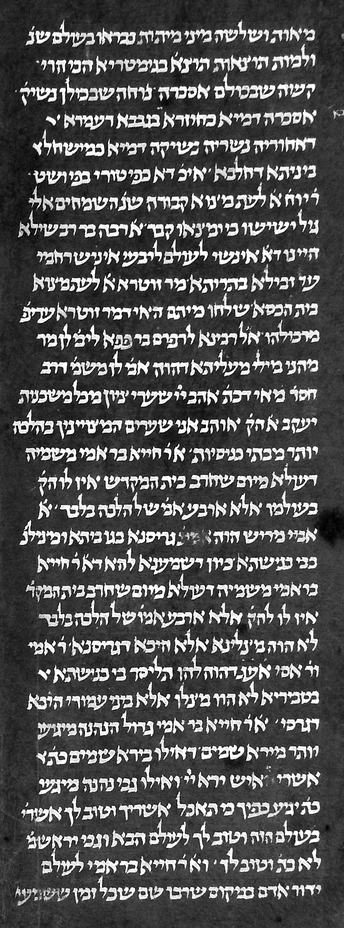 מאות ושלשה מיני מיתות נבראו בעולם שנ'
ולמות תוצאות תוצא' בגימטריא הכי הוי'
קשה שבכולם אסכרה ניחה שבכולן נשיק'
אסכרה דמייא כחיזרא בגבבא דעמרא
דאחוריה נשריה נשיקה דמיא כמישחל
ביניתא דחלבא איכ' דא' כפיטורי בפי ושט
ר' יוח' א' לעת מצוא זו קבורה שנ' השמחים אלי
גיל ישישו כי ימצאו קבר א' רבה בר רב שילא
היינו דא' אינשי לעולם ליבעי איניש רחמי
על זבולא בתריתא מר זוטרא א' לעת מצוא
בית הכסא שלחו מיתם הא דמר זוטרא עדיפ'
מכולהו א'ל רבינא לרפרם בר פפא לימ' לן מר
מהני מילי מעלייתא דהוה אמ' לן משמ' דרב
חסד' מאי דכת' אהב יי' שערי ציון מכל משכנות
יעקב א' הק' אוהב אני שערים המצויינין בהלכה
יותר מבתי כנסיות א'ר חייא בר אמי משמיה
דעולא מיום שחרב בית המקדש אין לו להק'
בעולמו אלא ארבע אמ' של הלכה בלבד א'
אביי מריש הוה גריסנא בגו ביתא ומצלינ'
בבי כנישתא כיון דשמענא להא דא'ר חייא
בר אמי משמיה דעולא מיום שחרב בית המקד'
אין לו להק' אלא ארבע אמו' של הלכה בלבד
לא הוה מצלינא אלא היכא דגריסנא ר' אמי
ור' אסי אע'ג דהוה להו תליסר בי כנישתא
בטבריא לא הוו מצלו אלא ביני עמודי היכא
דגרסי' א'ר חייא בר אמי גדול הנהנה מיגיעו
יותר מירא שמים דאילו בירא שמים כת'
אשרי איש ירא יי' ואילו גבי נהנה מיגיעו
כת' יגיע כפיך כי תאכל אשריך וטוב לך אשריך
בעולם הזה וטוב לך לעולם הבא וגבי ירא שמ'
לא כת' וטוב לך וא'ר חייא בר אמי לעולם
ידור אדם במקום שרבו שם שכל זמן